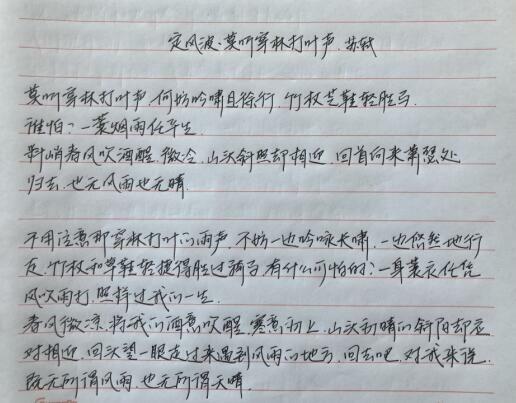 定风波·莫听穿林打叶声 苏轼
莫听穿林打叶声,何妨吟啸且徐行,竹杖芒鞋轻胜马
谁怕?一蓑烟雨任平生
料峭春风吹酒醒,微冷,山头斜照却相迎,回首向来萧瑟处
归去,也无风雨也无晴
不用注意那穿林打叶的雨声,不妨一边吟咏长啸,一边悠然地行
走,竹杖和草鞋轻捷得胜过骑马,有什么可怕的?一身蓑衣任凭
风吹雨打,照样过我的一生
春风微凉,将我的酒意吹醒,寒意初上,山头初晴的斜阳却应
对相迎,回头望一眼走过来遇到风雨的地方,回去吧,对我来说
既无所谓风雨,也无所谓天晴